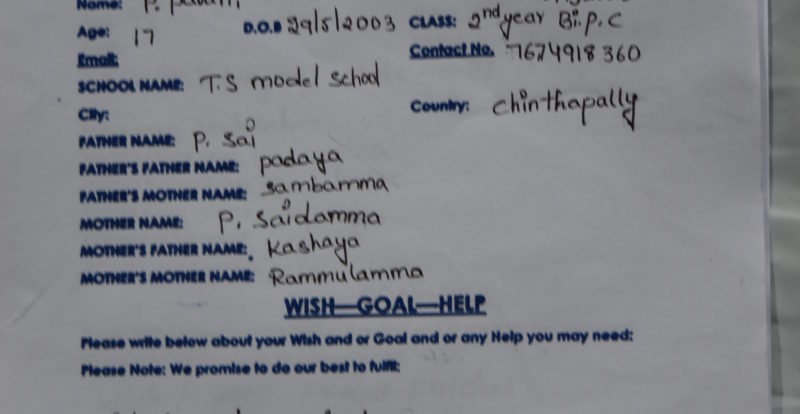 Name: P.
Age: 17 D.O.B 29/5/2003 CLASS: 2nd year Bi.P.C
Email: Contact No. 7674918360
SCHOOL NAME: T.S model school
City: Country: chinthapally
FATHER NAME: P. Sai
FATHER'S FATHER NAME: padaya
FATHER'S MOTHER NAME: sambamma
MOTHER NAME: P. Saidamma
MOTHER'S FATHER NAME: Kashaya
MOTHER'S MOTHER NAME: Rammulamma
WISH—GOAL—HELP
Please write below about your Wish and or Goal and or any Help you may need:
Please Note: We promise to do our best to fulfil: